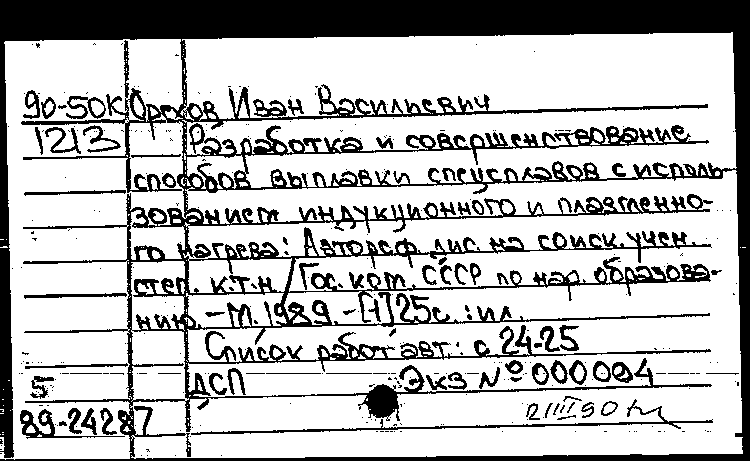 90-50К Орехов Иван Васильевич
1213 Разработка и совершенствование
способов выплавки спецсплавов с исполь-
зованием индукционного и плазменно-
го нагрева: Автореф. дис. на соиск. учен.
степ. к.т.н / Гос. ком. СССР по нар. образова-
нию. - М. 1989. - [1] 25с. : ил.
Список работ авт.: с 24-25
5 ДСП Экз № 000004
89-24287 2 III 90